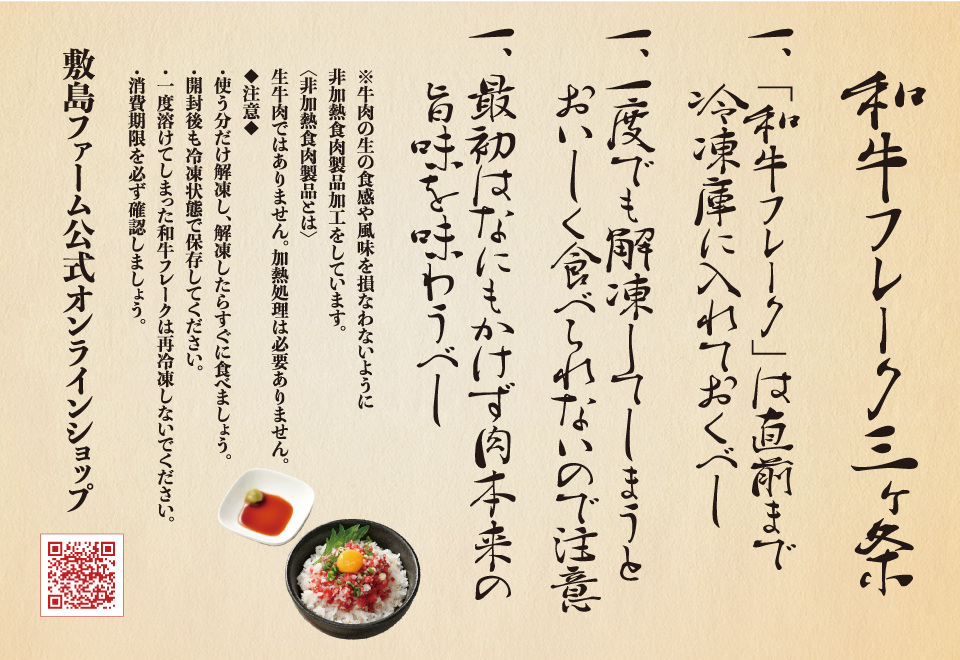 和牛フレーク三ヶ条
一、「和牛フレーク」は直前まで
冷凍庫に入れておくべし
一、一度でも解凍してしまうと
おいしく食べられないので注意
一、最初はなにもかけず肉本来の
旨味を味わうべし
※牛肉の生の食感や風味を損なわないように
非加熱食肉製品加工をしています。
〈非加熱食肉製品とは〉
生牛肉ではありません。加熱処理は必要ありません。
◆注意◆
・使う分だけ解凍し、解凍したらすぐに食べましょう。
・開封後も冷凍状態で保存してください。
・一度溶けてしまった和牛フレークは再冷凍しないでください。
・消費期限を必ず確認しましょう。
敷島ファーム公式オンラインショップ